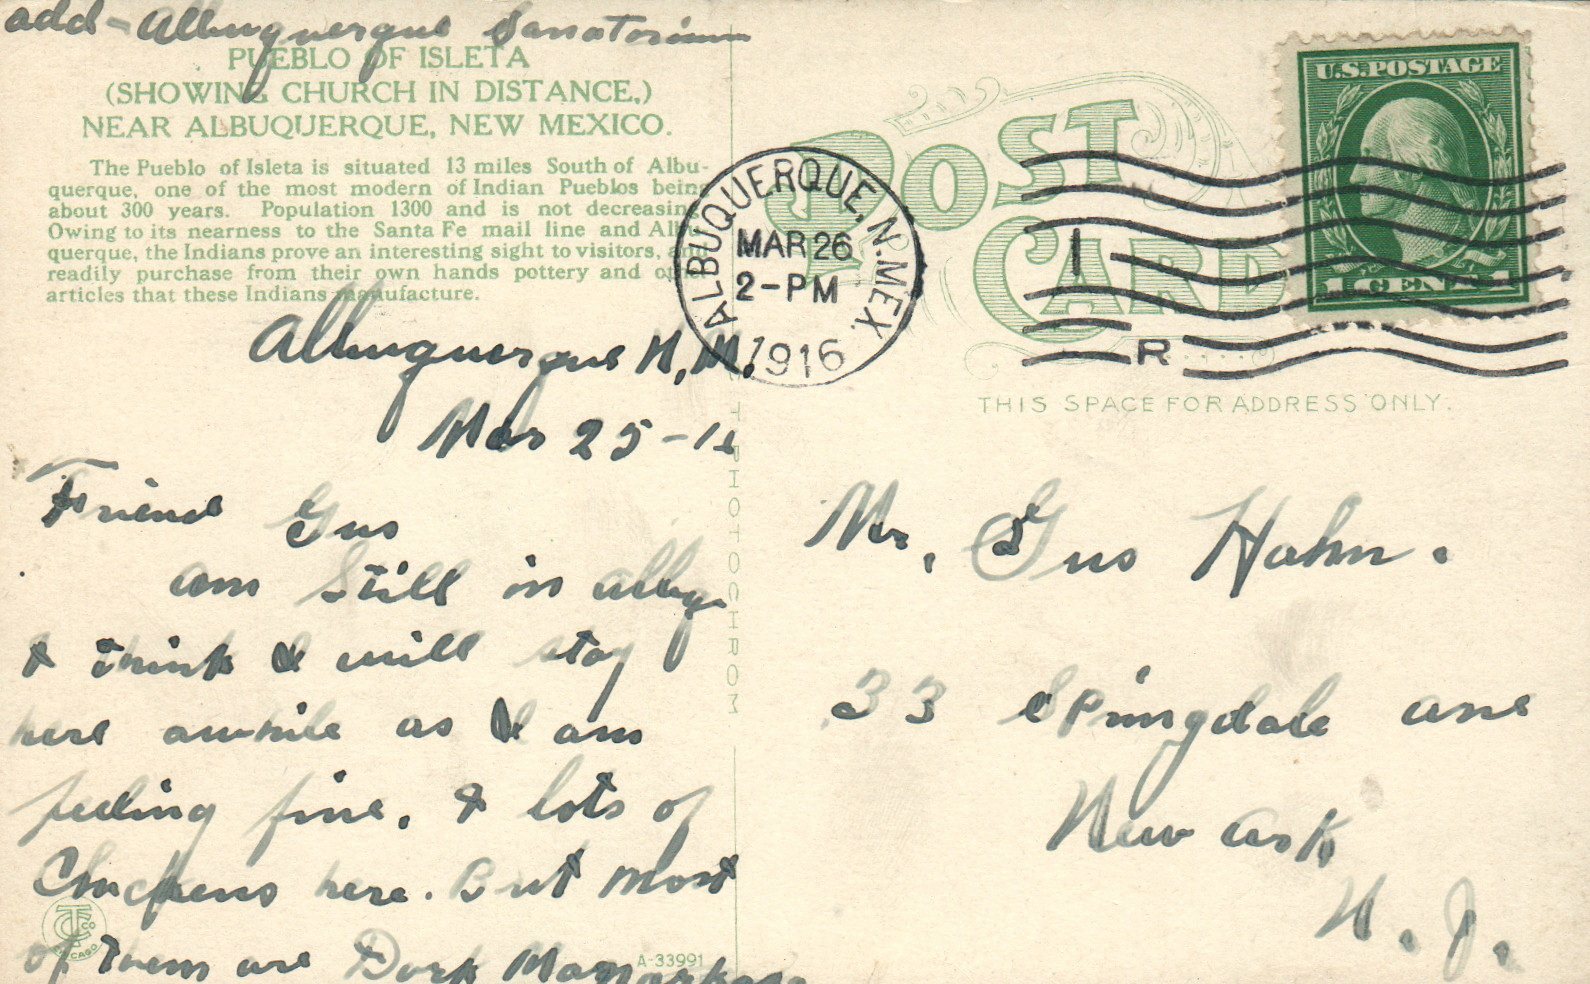 add - Albuquerque Sanatorium
PUEBLO OF ISLETA
(SHOWING CHURCH IN DISTANCE,)
NEAR ALBUQUERQUE, NEW MEXICO.
The Pueblo of Isleta is situated 13 miles South of Albu-
querque, one of the most modern of Indian Pueblos being
about 300 years. Population 1300 and is not decreasing
Owing to its nearness to the Santa Fe mail line and Al
querque, the Indians prove an interesting sight to visitors,
readily purchase from their own hands pottery and
articles that these Indians manufacture.
Albuquerque N.M.
Mar 25-16
Friend Gus
am still in Albuq
& think I will stay
here awhile as I am
feeling fine. & lots of
Chickens here. But most
of them are Dark
A-33991
PHOTOCHROM
CHICAGO
POST
CARD
ALBUQUERQUE, N. MEX.
MAR 26
2-PM
1916
1
R
U.S. POSTAGE
1 CENT 1
THIS SPACE FOR ADDRESS ONLY.
Mr. Gus Hahn.
33 Springdale ave
Newark
N. J.